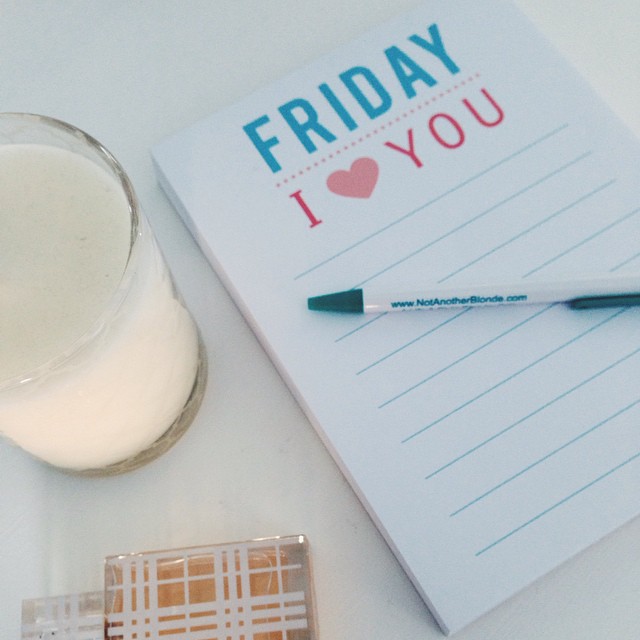 FRIDAY
I ♥ YOU
www.NotAnotherBlonde.com